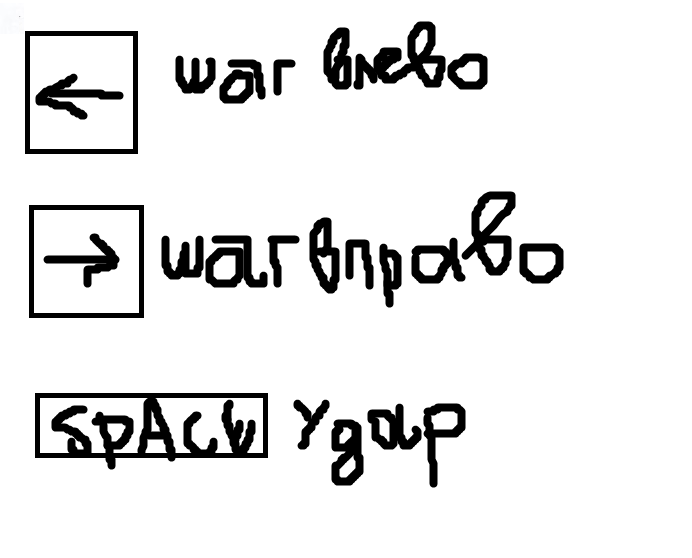 ← шаг влево
→ шаг вправо
space удар